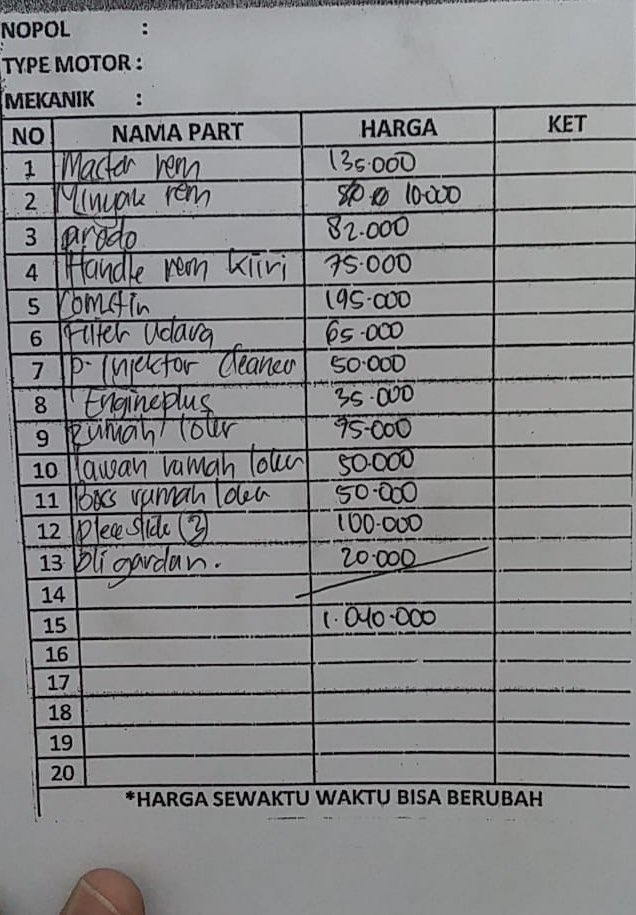 NOPOL :
TYPE MOTOR :
MEKANIK :
NO NAMA PART HARGA KET
1 Mastar rem 135.000
2 Minyak rem 10.000
3 prodo 82.000
4 Handle rem kiiri 75.000
5 romstin 195.000
6 Filter Udara 65.000
7 P. Injektor Cleaner 50.000
8 Engineplus 35.000
9 Rumah loler 95.000
10 lawan rumah loler 50.000
11 Bos rumah loler 50.000
12 pleeslide (3) 100.000
13 Oli gardan. 20.000
14
15 1.040.000
16
17
18
19
20
*HARGA SEWAKTU WAKTU BISA BERUBAH